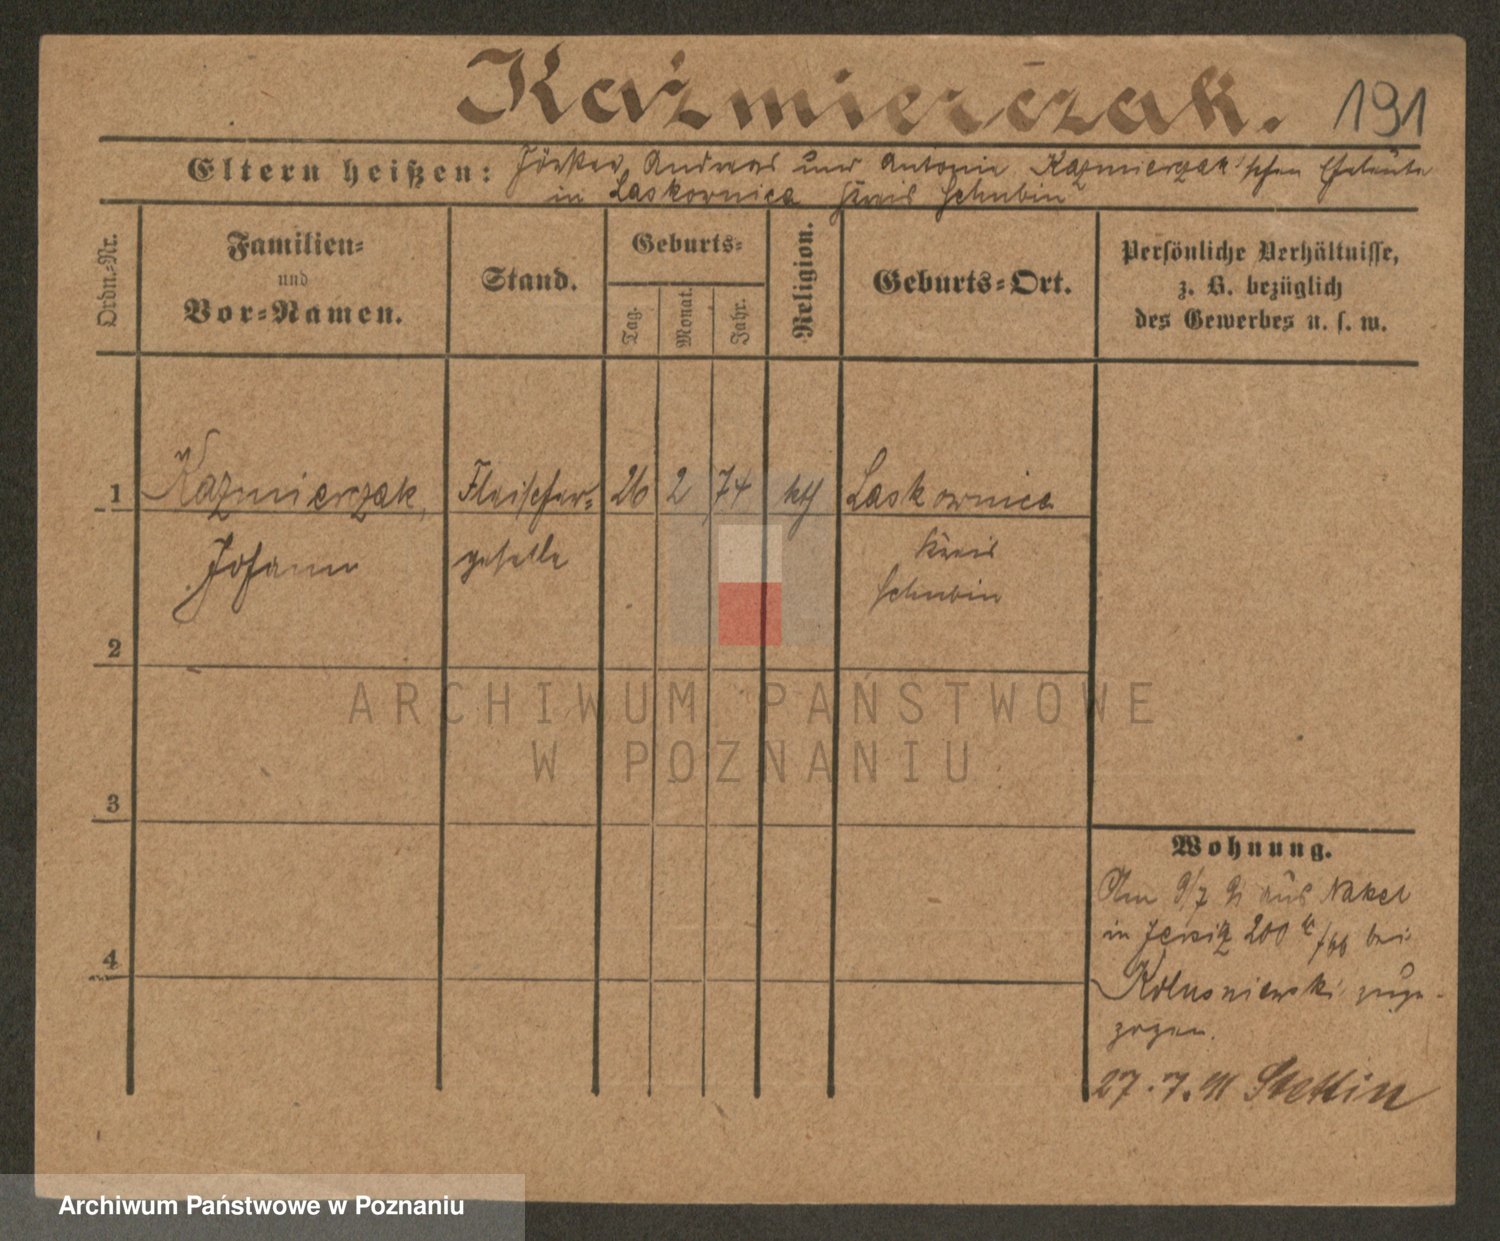 Kaźmierczak. 191
Eltern heißen: Förster Andreas und Antonie Kazmierzak'schen Eheleute
in Laskownica Kreis Schubin
Ordn.-Nr.
Familien-
und
Vor-Namen.
Stand.
Geburts-
Tag.
Monat.
Jahr.
Religion.
Geburts-Ort.
Persönliche Verhältnisse,
z. B. bezüglich
des Gewerbes u. s. w.
1 Kazmierzak, Fleischer- 26 2 74 kth Laskownica
Johann geselle Kreis
Schubin
2
3
4
Wohnung.
Am 9/7 91 aus Nakel
in Jersitz 200 bei
zuge-
zogen.
27.7.91 Stettin
ARCHIWUM PAŃSTWOWE
W POZNANIU
Archiwum Państwowe w Poznaniu